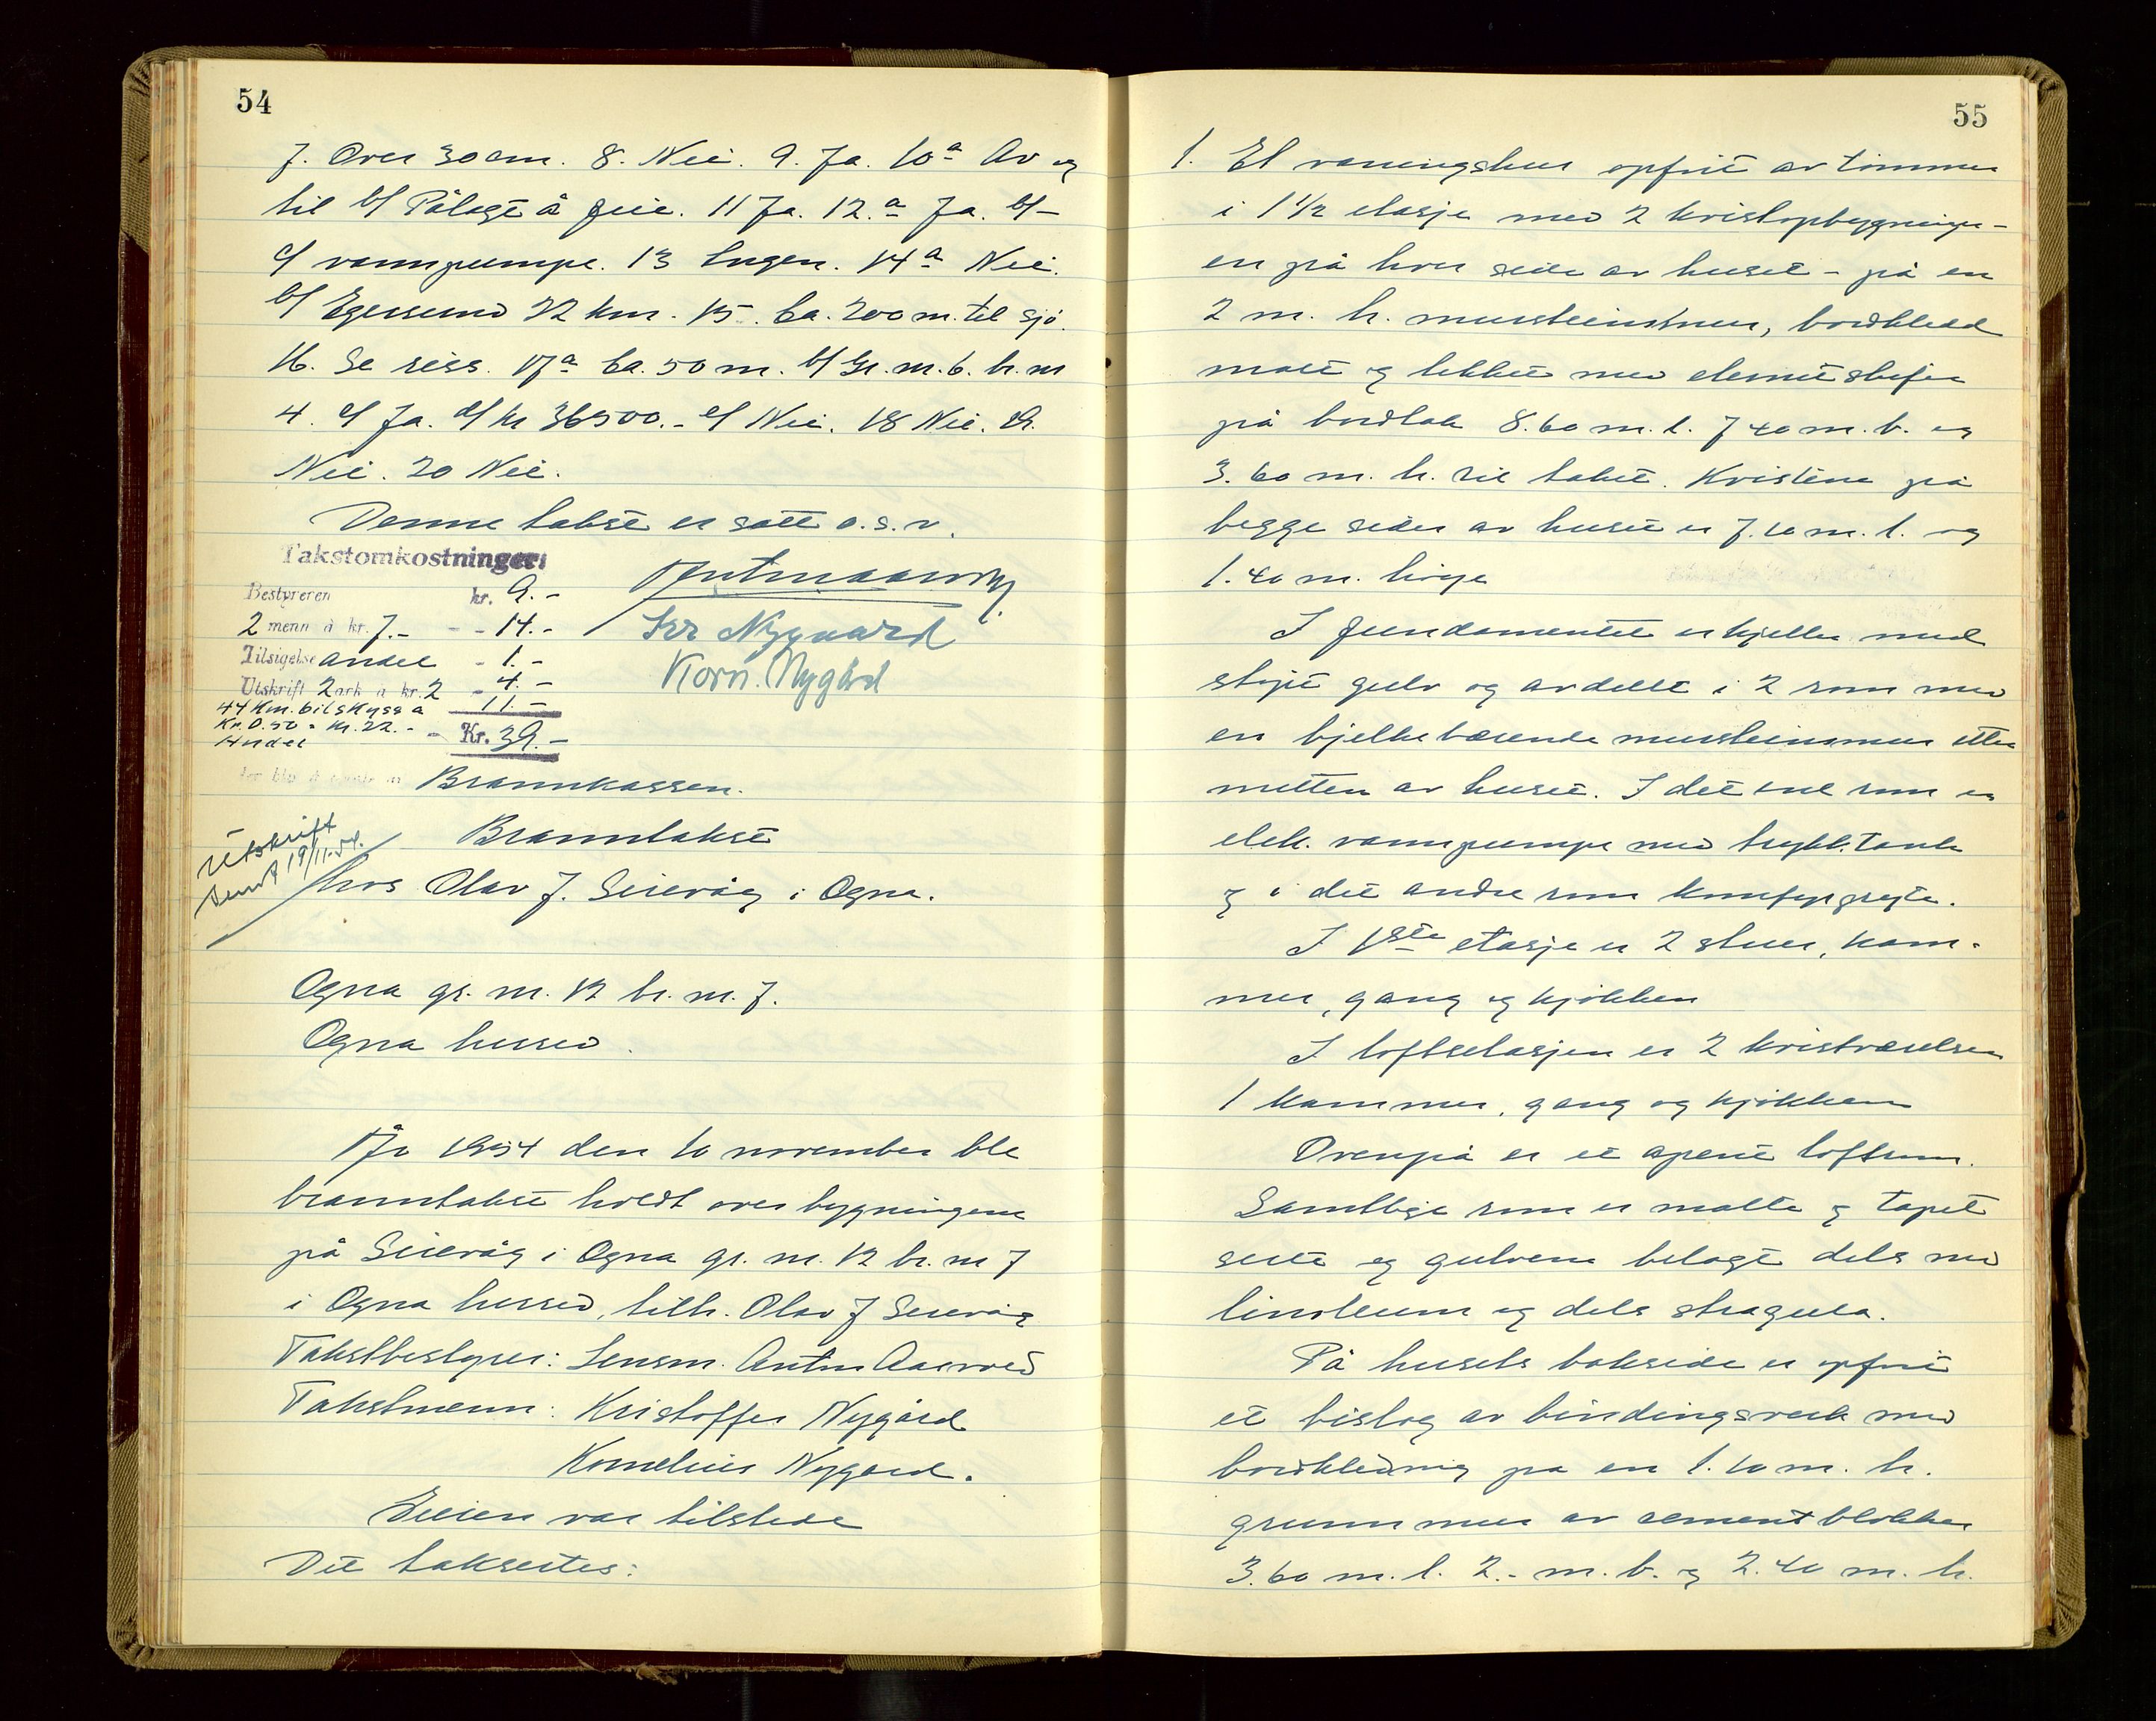 54
7. Over 30 cm. 8. Nei. 9. Ja. 10a Av og
til b/ Pålagt å feie. 11 Ja. 12.a Ja. b/ -
c/ vannpumpe. 13 Ingen. 14a Nei.
b/ Egersund 22 km. 15. Ca. 200 m. til sjø.
16. Se riss. 17a Ca. 50 m. b/ Gr. nr. 6. br. nr
4. c/ Ja. d/ kr 36500.- e/ Nei. 18 Nei. 19.
Nei. 20 Nei.
Denne takst er satt o.s.v.
Takstomkostninger:
Bestyreren kr. 9.-
2 menn à kr. 7.- - - 14.-
Tilsigelse andel - 1.-
Utskrift 2 ark à kr. 2 - 4.-
44 km. bilskyss a 11.-
Kr. 0.50 = kr. 22.-
Andel - Kr. 39.-
Kr. Nyguard
Korn. Nygård
Brannkassen.
Utskrift
sendt 19/11-54.
Branntakst
hos Olav J. Sirevåg i Ogna.
Ogna gr. nr. 12 br. nr. 7.
Ogna herred.
År 1954 den 10 november ble
branntakst holdt over bygningene
på Sirevåg i Ogna gr. nr. 12 br. nr 7
i Ogna herred, tilh. Olav J Sirevåg
Takstbestyrer: Lensm. Anton Aarrvod
Takstmenn: Kristoffer Nygård
Kornelius Nygård.
Eieren var tilstede
Det takseres:
55
1. Et våningshus opført av tømmer
i 1 1/2 etasje med 2 kvistopbygninger -
en på hver side av huset - på en
2 m. h. mursteinsmur, bordkledd
malt og tekket med eternitskifer
på bordtak 8.60 m. l. 7.40 m. b. og
3.60 m. h. til taket. Kvistene på
begge sider av huset er 7.10 m. l. og
1.40 m. høye
I fundamentet er kjeller med
støpt gulv og avdelt i 2 rom med
en bjelkebærende mursteinsmur etter
midten av huset. I det ene rom er
elek. vannpumpe med trykk.tank
og i det andre rom komfyrgryte.
I 1ste etasje er 2 stuer, kam-
mer, gang og kjøkken
I loftsetasjen er 2 kvistværelser
1 kammer, gang og kjøkken
Ovenpå er et åpent loftsrom.
Samtlige rom er malte og tapet
sert og gulvene belagt dels med
linoleum og dels stragula.
På husets bakside er opført
et bislag av bindingsverk med
bordkledning på en 1.10 m. h.
grunnmur av cementblokker
3.60 m. l. 2.- m. b. og 2.40 m. h.